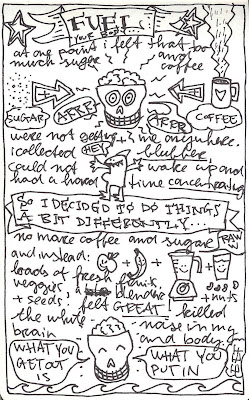 FUEL
YOUR BODY
at one point i felt that too
much sugar and
coffee
SUGAR AFTER AFTER COFFEE
were not getting me anywhere.
i collected HEY blubber
could not wake up and
had a hard time concentrating
SO I DECIDED TO DO THINGS
A BIT DIFFERENTLY...
no more coffee and sugar RAW
and instead:
loads of fresh fruits
veggies, blended
+ seeds! + nuts
felt GREAT! killed
the white noise in my
brain and body.
WHAT YOU
GET OUT
IS
WHAT YOU
PUT IN